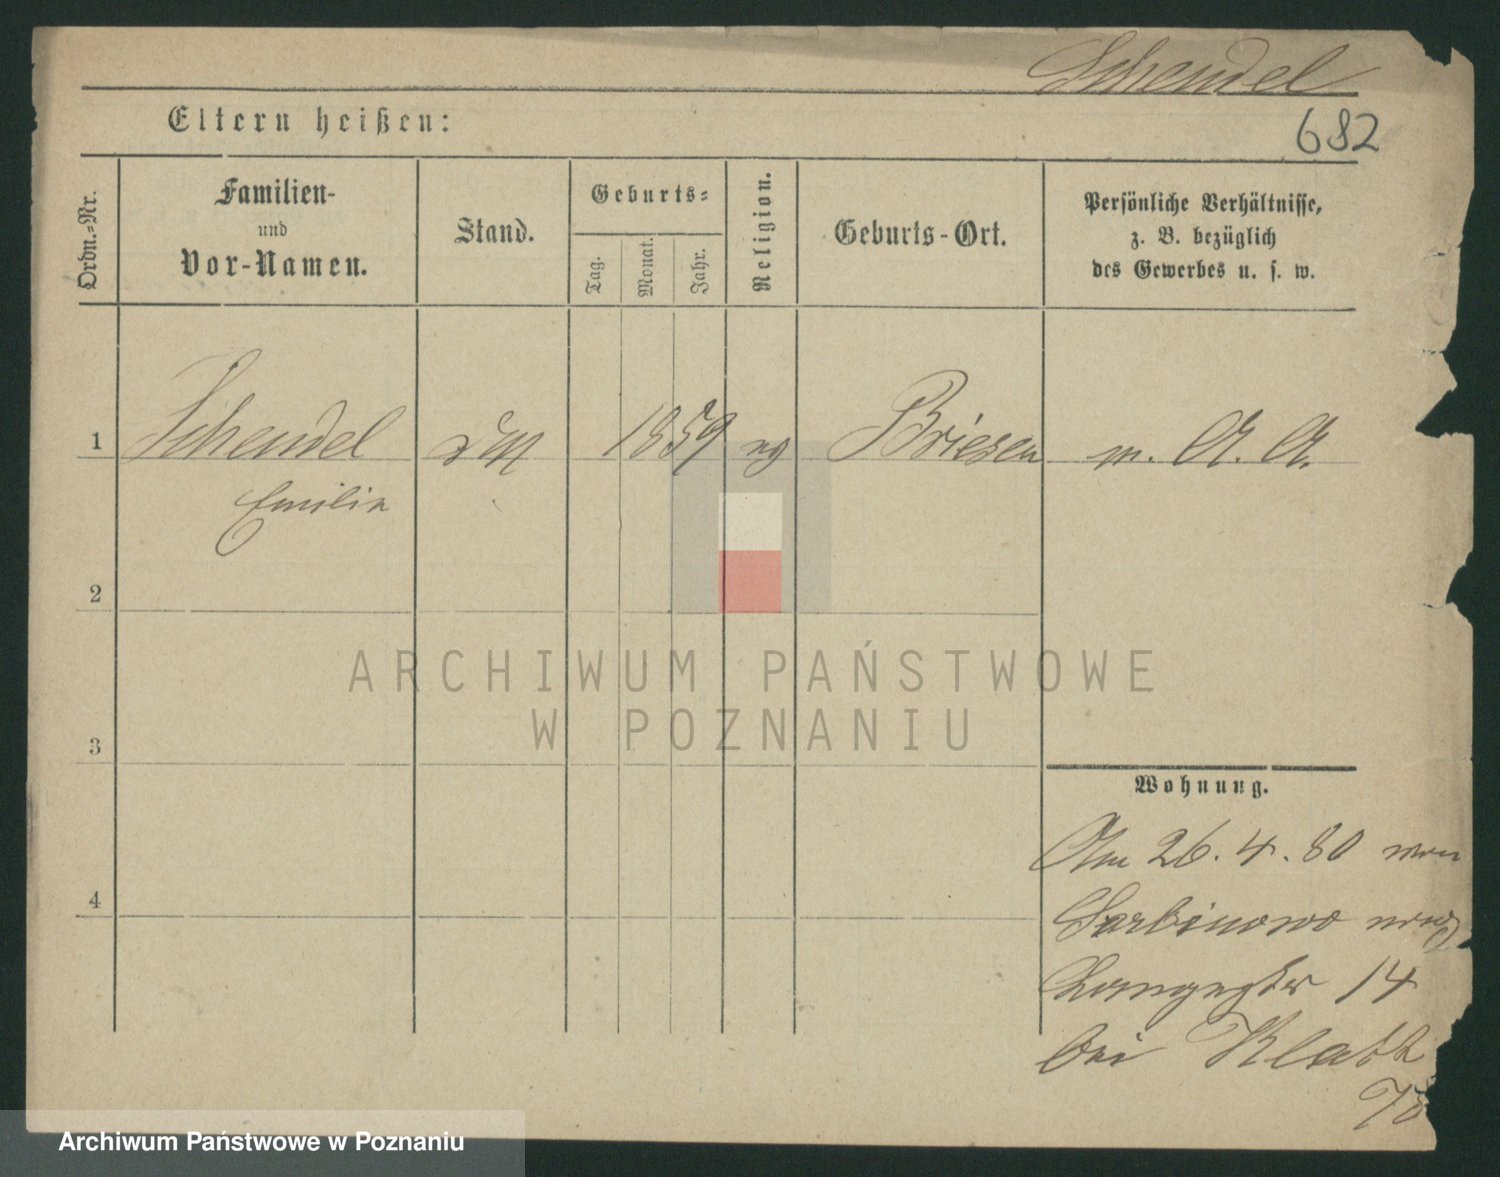 Schendel
682
Eltern heißen:
Ordn.-Nr.
Familien-
und
Vor-Namen.
Stand.
Geburts-
Tag.
Monat.
Jahr.
Religion.
Geburts-Ort.
Persönliche Verhältnisse,
z. B. bezüglich
des Gewerbes u. s. w.
1 Schendel 1859 Briesen m. A. A.
Emilie
2
3
4
Wohnung.
Am 26. 4. 80 von
Sarbinowo nach
14
bei Klatt
ARCHIWUM PAŃSTWOWE
W POZNANIU
Archiwum Państwowe w Poznaniu